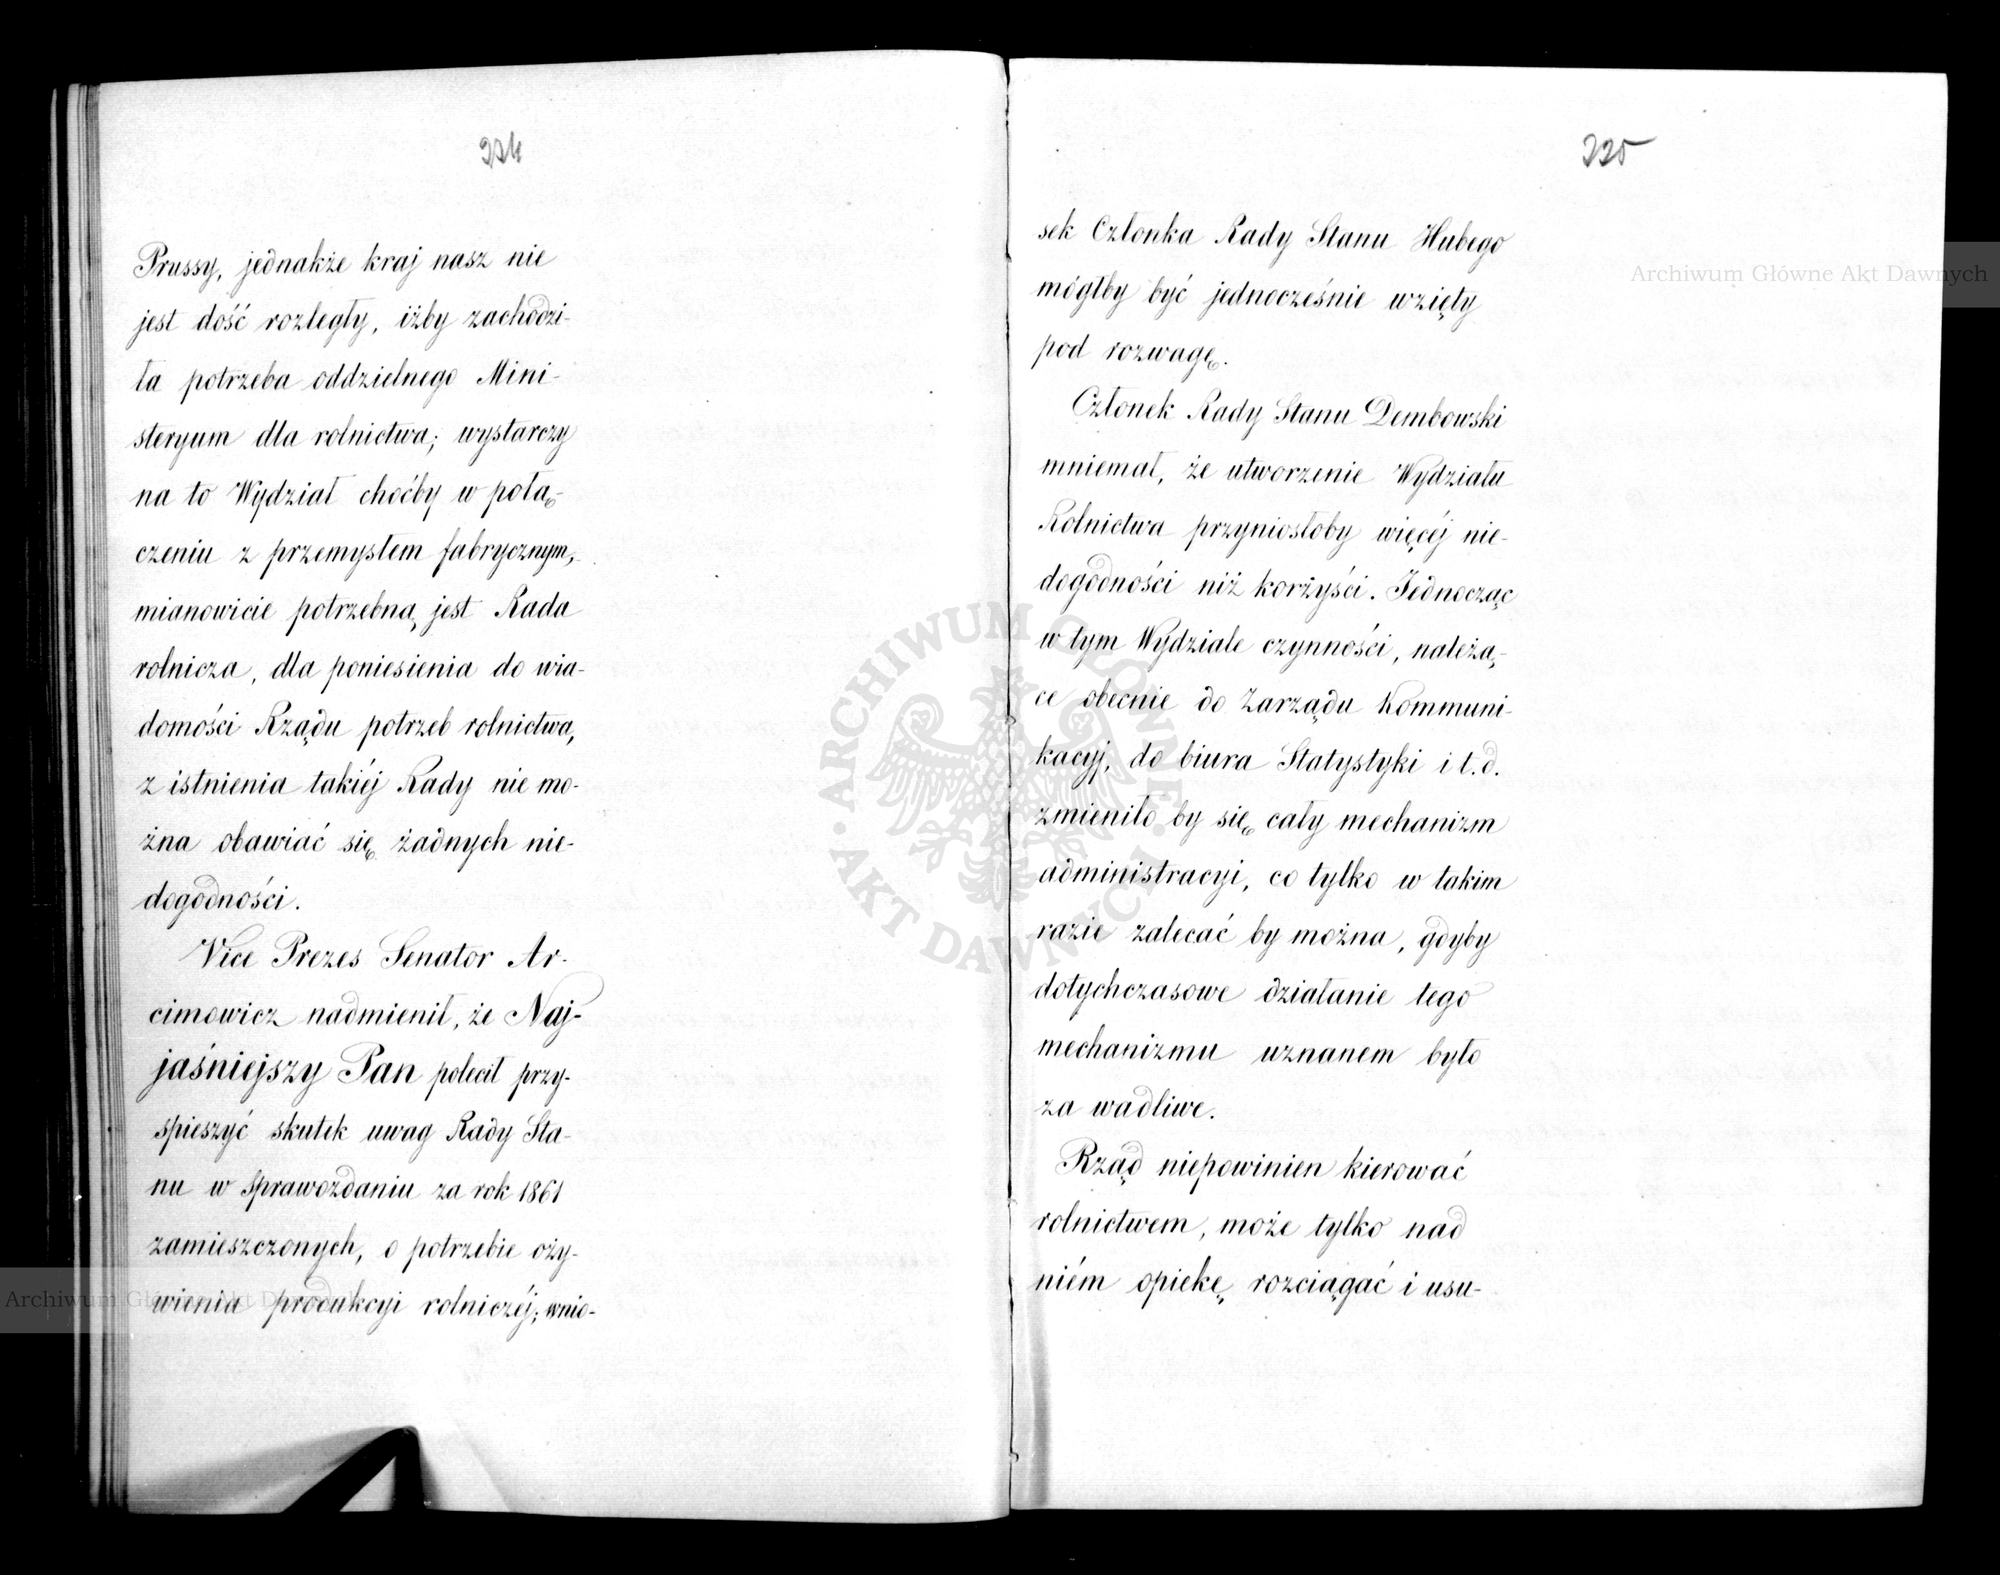 224
Prussy, jednakże kraj nasz nie
jest dość rozległy, iżby zachodzi-
ła potrzeba oddzielnego Mini-
steryum dla rolnictwa; wystarczy
na to Wydział choćby w połą-
czeniu z przemysłem fabrycznym,
mianowicie potrzebną jest Rada
rolnicza, dla poniesienia do wia-
domości Rządu potrzeb rolnictwa,
z istnienia takiéj Rady nie mo-
żna obawiać się żadnych nie-
dogodności.
Vice Prezes Senator Ar-
cimowicz nadmienił, że Naj-
jaśniejszy Pan polecił przy-
spieszyć skutek uwag Rady Sta-
nu w sprawozdaniu za rok 1861
zamieszczonych, o potrzebie oży-
wienia produkcyi rolniczéj; wnio-
225
sek Członka Rady Stanu Hubego
mógłby być jednocześnie wzięty
pod rozwagę.
Członek Rady Stanu Dembowski
mniemał, że utworzenie Wydziału
Rolnictwa przyniosłoby więcéj nie-
dogodności niż korzyści. Jednocząc
w tym Wydziale czynności, należą-
ce obecnie do Zarządu Kommuni-
kacyj, do biura Statystyki i t. d.
zmieniło by się cały mechanizm
administracyi, co tylko w takim
razie zalecać by można, gdyby
dotychczasowe działanie tego
mechanizmu uznanem było
za wadliwe.
Rząd niepowinien kierować
rolnictwem, może tylko nad
niém opiekę rozciągać i usu-
Archiwum Główne Akt Dawnych
Archiwum Główne Akt Dawnych
ARCHIWUM GŁÓWNE · AKT DAWNYCH ·